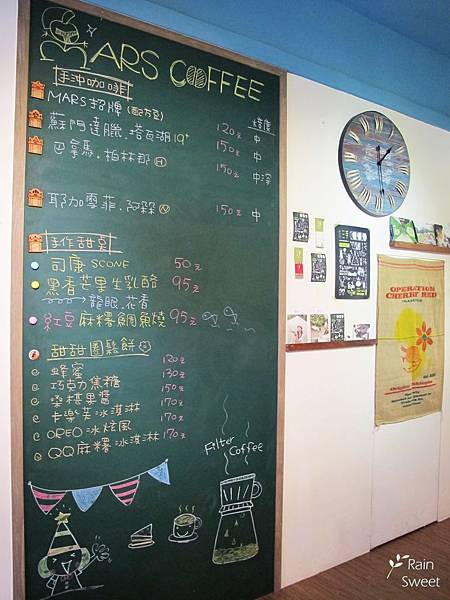 MARS COFFEE
手沖咖啡
焙度
MARS招牌(配方豆) 120元 中
蘇門達臘.塔瓦湖19° 150元 中
巴拿馬.柏林那(H) 150元 中深
耶加雪菲.阿朵(N) 150元 中
手作甜點
司康SCONE 50元
黑香芒果生乳酪 95元
龍眼.花香
紅豆麻糬鯛魚燒 95元
甜甜圈鬆餅
蜂蜜 120元
巧克力焦糖 130元
桑椹果醬 150元
卡樂芙冰淇淋 170元
OREO冰炫風 170元
QQ麻糬冰淇淋 170元
Filter Coffee
OPERATION
CHERRY RED
Rain
Sweet